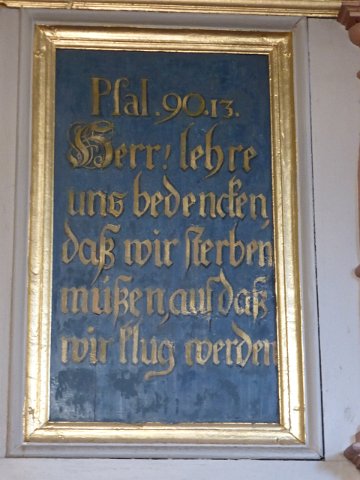 Psal. 90.13.
Herr! lehre
uns bedencken,
daß wir sterben
müßen, auf daß
wir klug werden